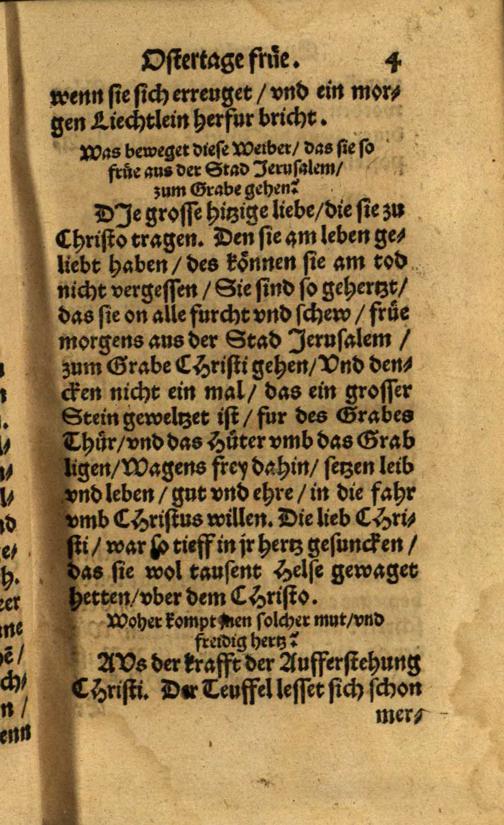 Ostertage früe. 4
wenn sie sich erreuget / vnd ein mor⸗
gen Liechtlein herfur bricht.
Was beweget diese Weiber / das sie so
früe aus der Stad Jerusalem /
zum Grabe gehen?
DJe grosse hitzige liebe / die sie zu
Christo tragen. Den sie am leben ge⸗
liebt haben / des können sie am tod
nicht vergessen / Sie sind so gehertzt /
das sie on alle furcht vnd schew / früe
morgens aus der Stad Jerusalem /
zum Grabe CHristi gehen / Vnd den⸗
cken nicht ein mal / das ein grosser
Stein geweltzet ist / fur des Grabes
Thür / vnd das Hüter vmb das Grab
ligen / Wagens frey dahin / setzen leib
vnd leben / gut vnd ehre / in die fahr
vmb CHristus willen. Die lieb CHri⸗
sti / war so tieff in jr hertz gesuncken /
das sie wol tausent Helse gewaget
hetten / vber dem CHristo.
Woher kompt jnen solcher mut / vnd
freidig hertz?
AVs der krafft der Aufferstehung
CHristi. Der Teuffel lesset sich schon
mer⸗